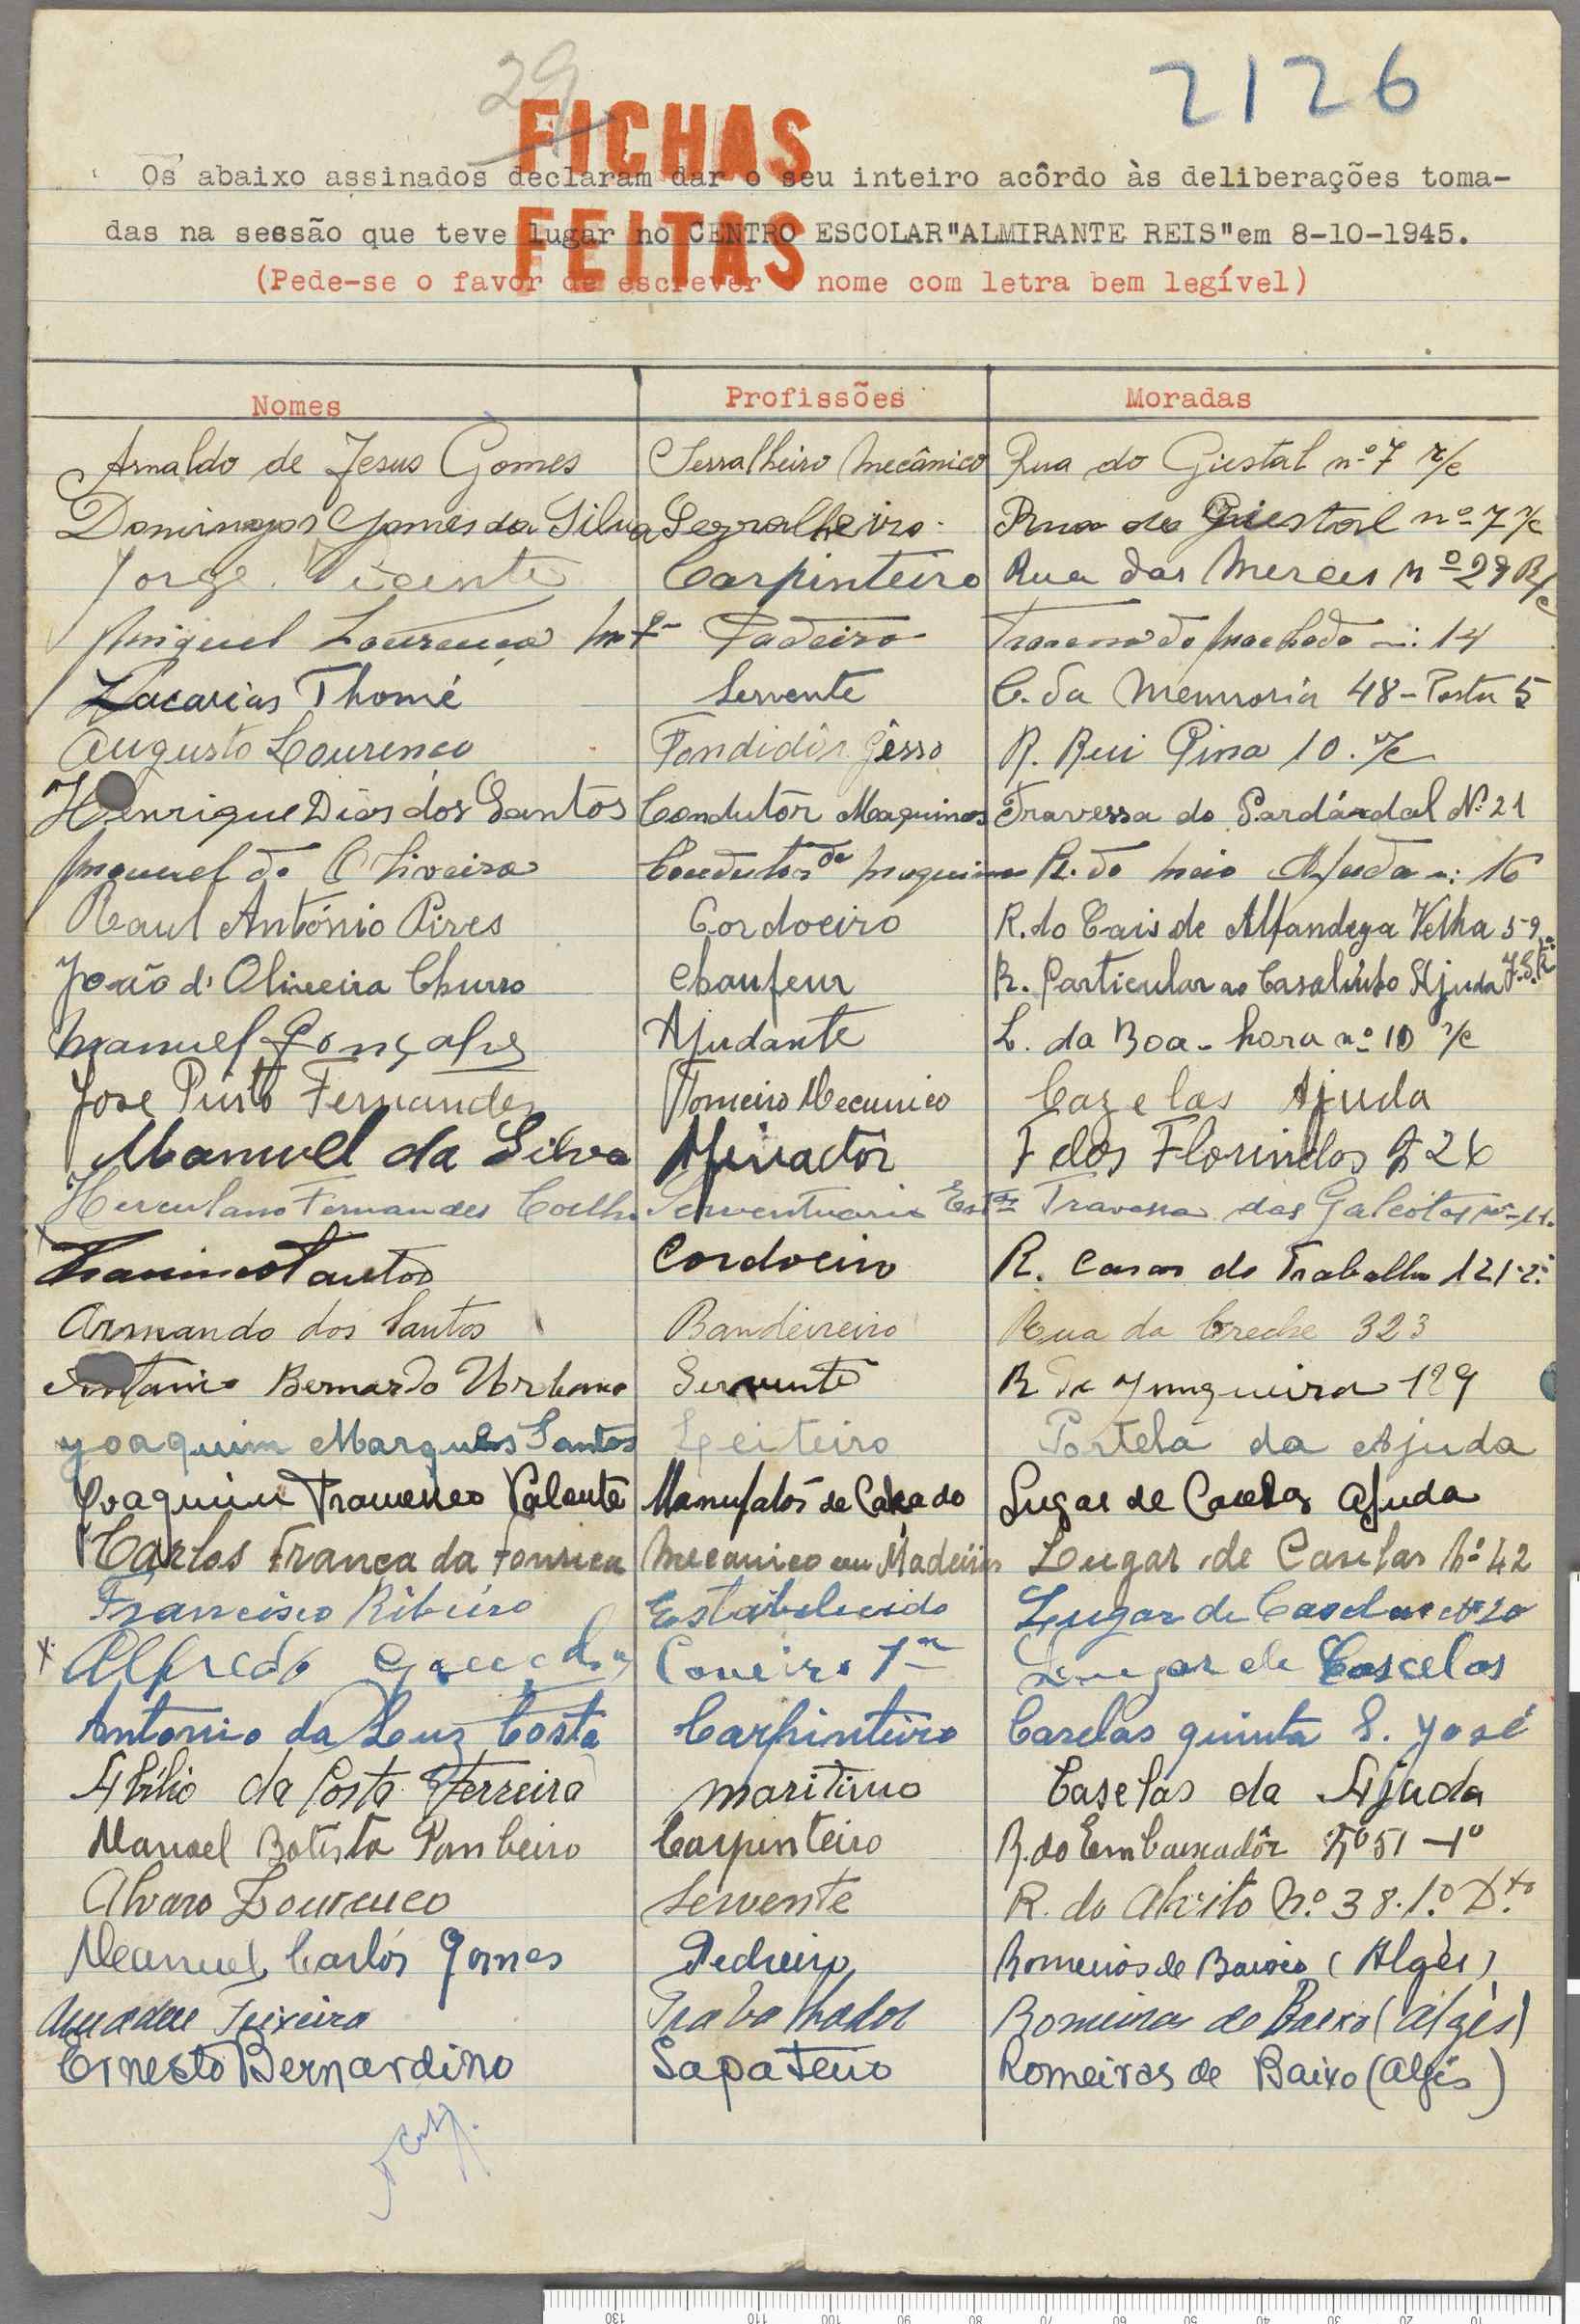 29
2126
FICHAS
FEITAS
Os abaixo assinados declaram dar o seu inteiro acôrdo às deliberações toma-
das na sessão que teve lugar no CENTRO ESCOLAR "ALMIRANTE REIS" em 8-10-1945.
(Pede-se o favor de escrever o nome com letra bem legível)
Nomes Profissões Moradas
Arnaldo de Jesus Gomes Serralheiro Mecânico Rua do Giestal nº 7 r/c
Domingos Gomes da Silva Serralheiro Rua do Giestal nº 7 r/c
Jorge Vicente Carpinteiro Rua das Merces nº 29 R/c
Miguel Lourenço Padeiro Travessa do Machado n: 14
Zacarias Thomé Servente C. da Memroria 48 - Porta 5
Augusto Lourenço Fondidôr Gêsso R. Rui Pina 10. r/c
Henrique Dias dos Santos Condutôr Maquinas Travessa do Pardal Nº 21
Manuel de Oliveira Condutor de Maquinas R. do Meio Ajuda n: 16
Raul António Pires Cordoeiro R. do Cais de Alfandega Velha 59
João d'Oliveira Churro Chaufeur R. Particular ao Casalinho Ajuda J.S.R.
Manuel Gonçalves Ajudante L. da Boa-hora nº 10 r/c
Jose Pinto Fernandes Torneiro Mecanico Cazelas Ajuda
Manuel da Silva T dos Florindos 26
Herculano Fernandes Coelho Serventuario Travessa das Galeotas nº 11.
Santos Cordoeiro R. Casas do Trabalho 121-2º
Armando dos Santos Bandeireiro Rua da Creche 323
Antonio Bernardo Urbano Servente R da Junqueira 129
Joaquim Marques Santos Leiteiro Portela da Ajuda
Joaquim Francisco Valente Manufatôr de Calçado Lugar de Caselas Ajuda
Carlos França da Fonseca Mecanico em Madeiras Lugar de Caselas Nº 42
Francisco Ribeiro Estabelecido Lugar de Caselas Nº 20
x Alfredo Lugar de Cascelas
Antonio da Luz Costa Carpinteiro Caselas quinta S. José
Abilio da Costa Ferreira maritimo Caselas da Ajuda
Manuel Batista Pombeiro Carpinteiro R. do Embaixadôr Nº 51 - 1º
Alvaro Lourenço Servente R. do Alvito Nº 38. 1º Dto.
Manuel Carlos Gomes Pedreiro Romeiras de Baixo (Algés)
Amadeu Teixeira Trabalhador Romeiras de Baixo (Algés)
Ernesto Bernardino Sapateiro Romeiras de Baixo (Algés)
130 110 100 90 80 70 60 50 40 30 20 10